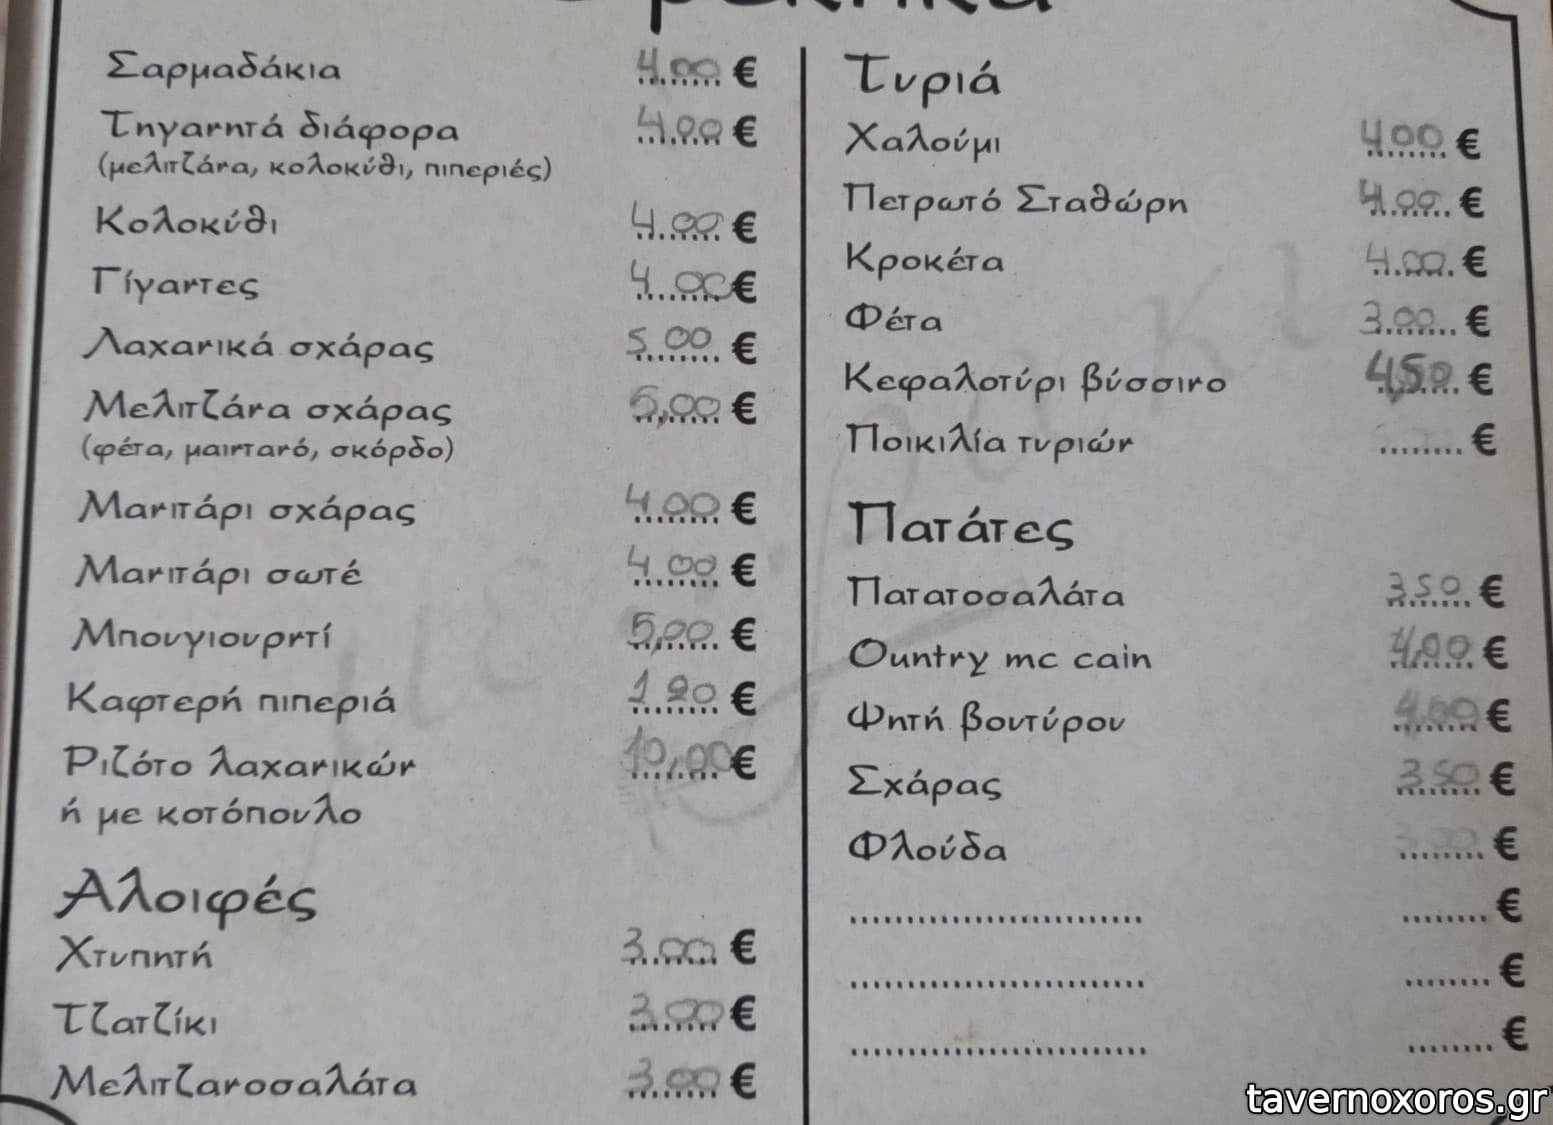 Ορεκτικά
Σαρμαδάκια 4.00 €
Τηγανητά διάφορα 4.00 €
(μελιτζάνα, κολοκύθι, πιπεριές)
Κολοκύθι 4.00 €
Γίγαντες 4.00 €
Λαχανικά σχάρας 5.00 €
Μελιτζάνα σχάρας 5,00 €
(φέτα, μαϊντανό, σκόρδο)
Μανιτάρι σχάρας 4.00 €
Μανιτάρι σωτέ 4.00 €
Μπουγιουρντί 5,00 €
Καφτερή πιπεριά 1.20 €
Ριζότο λαχανικών 10,00 €
ή με κοτόπουλο
Αλοιφές
Χτυπητή 3.00 €
Τζατζίκι 3.00 €
Μελιτζανοσαλάτα 3.00 €
Τυριά
Χαλούμι 4.00 €
Πετρωτό Σταθώρη 4.00 €
Κροκέτα 4.00 €
Φέτα 3.00 €
Κεφαλοτύρι βύσσινο 4,50 €
Ποικιλία τυριών ........ €
Πατάτες
Πατατοσαλάτα 3.50 €
Ountry mc cain 4,00 €
Ψητή βουτύρου 4.00 €
Σχάρας 3.50 €
Φλούδα 3.00 €
........................... ........ €
........................... ........ €
........................... ........ €
tavernoxoros.gr